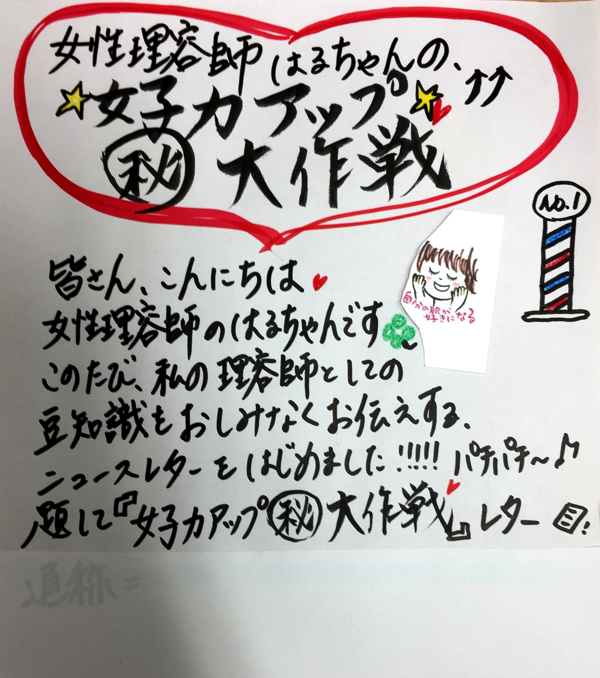 女性理容師はるちゃんの、
女子力アップ↑↑
㊙大作戦
No.1
皆さん、こんにちは
女性理容師のはるちゃんです
自分の肌が
好きになる
このたび、私の理容師としての
豆知識をおしみなくお伝えする、
ニュースレターをはじめました!!!!! パチパチ〜♪
題して『女子力アップ㊙大作戦』レター
通称=